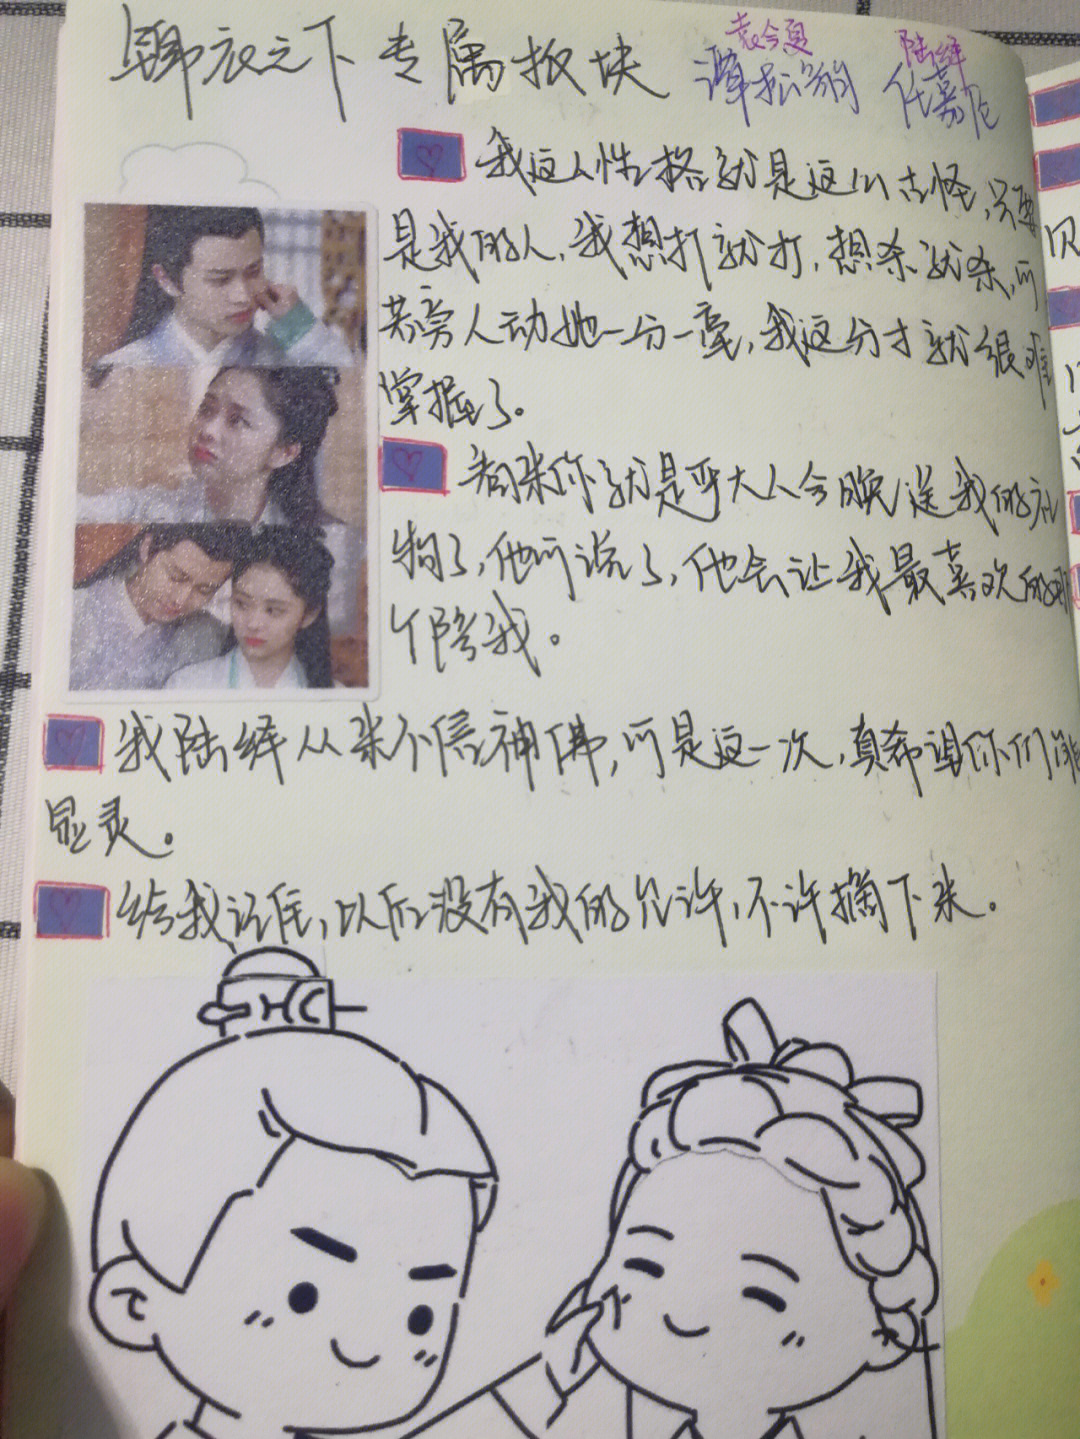 锦衣之下专属板块
袁今夏
谭松韵
陆绎
任嘉伦
我这人性格就是这么古怪,只要
是我的人,我想打就打,想杀就杀,可
若旁人动她一分一毫,我这分寸就很难
掌握了。
看来你就是严大人今晚送我的礼
物了,他可说了,他会让我最喜欢的那
个陪我。
我陆绎从来不信神佛,可是这一次,真希望你们能
显灵。
给我记住,以后没有我的允许,不许摘下来。